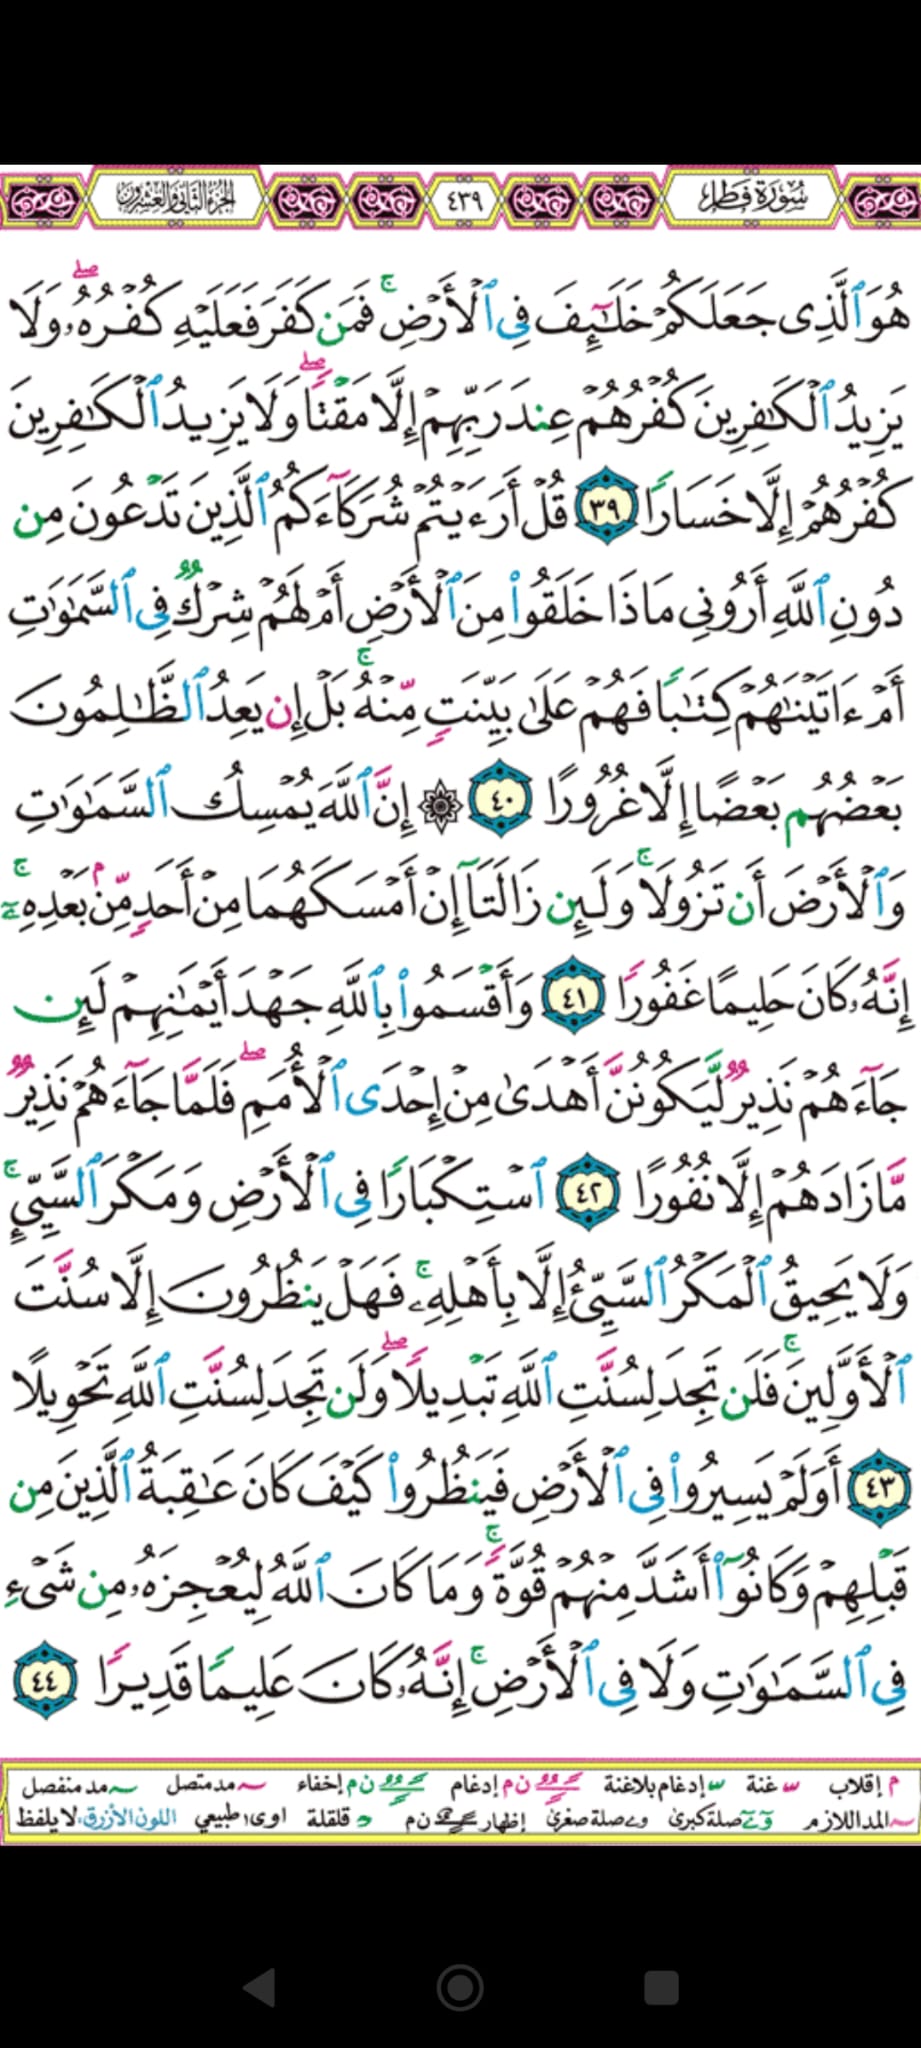 سُورَةُ فَاطِرٍ
٤٣٩
الجُزْءُ الثَّانِي وَالعِشْرُونَ
هُوَ ٱلَّذِى جَعَلَكُمْ خَلَٰٓئِفَ فِى ٱلْأَرْضِ ۚ فَمَن كَفَرَ فَعَلَيْهِ كُفْرُهُۥ ۖ وَلَا
يَزِيدُ ٱلْكَٰفِرِينَ كُفْرُهُمْ عِندَ رَبِّهِمْ إِلَّا مَقْتًا ۖ وَلَا يَزِيدُ ٱلْكَٰفِرِينَ
كُفْرُهُمْ إِلَّا خَسَارًا ٣٩ قُلْ أَرَءَيْتُمْ شُرَكَآءَكُمُ ٱلَّذِينَ تَدْعُونَ مِن
دُونِ ٱللَّهِ أَرُونِى مَاذَا خَلَقُوا۟ مِنَ ٱلْأَرْضِ أَمْ لَهُمْ شِرْكٌ فِى ٱلسَّمَٰوَٰتِ
أَمْ ءَاتَيْنَٰهُمْ كِتَٰبًا فَهُمْ عَلَىٰ بَيِّنَتٍ مِّنْهُ ۚ بَلْ إِن يَعِدُ ٱلظَّٰلِمُونَ
بَعْضُهُم بَعْضًا إِلَّا غُرُورًا ٤٠ ۞ إِنَّ ٱللَّهَ يُمْسِكُ ٱلسَّمَٰوَٰتِ
وَٱلْأَرْضَ أَن تَزُولَا ۚ وَلَئِن زَالَتَآ إِنْ أَمْسَكَهُمَا مِنْ أَحَدٍ مِّنۢ بَعْدِهِۦٓ ۚ
إِنَّهُۥ كَانَ حَلِيمًا غَفُورًا ٤١ وَأَقْسَمُوا۟ بِٱللَّهِ جَهْدَ أَيْمَٰنِهِمْ لَئِن
جَآءَهُمْ نَذِيرٌ لَّيَكُونُنَّ أَهْدَىٰ مِنْ إِحْدَى ٱلْأُمَمِ ۖ فَلَمَّا جَآءَهُمْ نَذِيرٌ
مَّا زَادَهُمْ إِلَّا نُفُورًا ٤٢ ٱسْتِكْبَارًا فِى ٱلْأَرْضِ وَمَكْرَ ٱلسَّيِّئِ ۚ
وَلَا يَحِيقُ ٱلْمَكْرُ ٱلسَّيِّئُ إِلَّا بِأَهْلِهِۦ ۚ فَهَلْ يَنظُرُونَ إِلَّا سُنَّتَ
ٱلْأَوَّلِينَ ۚ فَلَن تَجِدَ لِسُنَّتِ ٱللَّهِ تَبْدِيلًا ۖ وَلَن تَجِدَ لِسُنَّتِ ٱللَّهِ تَحْوِيلًا
٤٣ أَوَلَمْ يَسِيرُوا۟ فِى ٱلْأَرْضِ فَيَنظُرُوا۟ كَيْفَ كَانَ عَٰقِبَةُ ٱلَّذِينَ مِن
قَبْلِهِمْ وَكَانُوٓا۟ أَشَدَّ مِنْهُمْ قُوَّةً ۚ وَمَا كَانَ ٱللَّهُ لِيُعْجِزَهُۥ مِن شَىْءٍ
فِى ٱلسَّمَٰوَٰتِ وَلَا فِى ٱلْأَرْضِ ۚ إِنَّهُۥ كَانَ عَلِيمًا قَدِيرًا ٤٤
م إقلاب غنة إدغام بلاغنة ن م إدغام ن م إخفاء مد متصل مد منفصل
المد اللازم صلة كبرى صلة صغرى إظهار ن م قلقلة اوى طبيعي اللون الأزرق: لا يلفظ